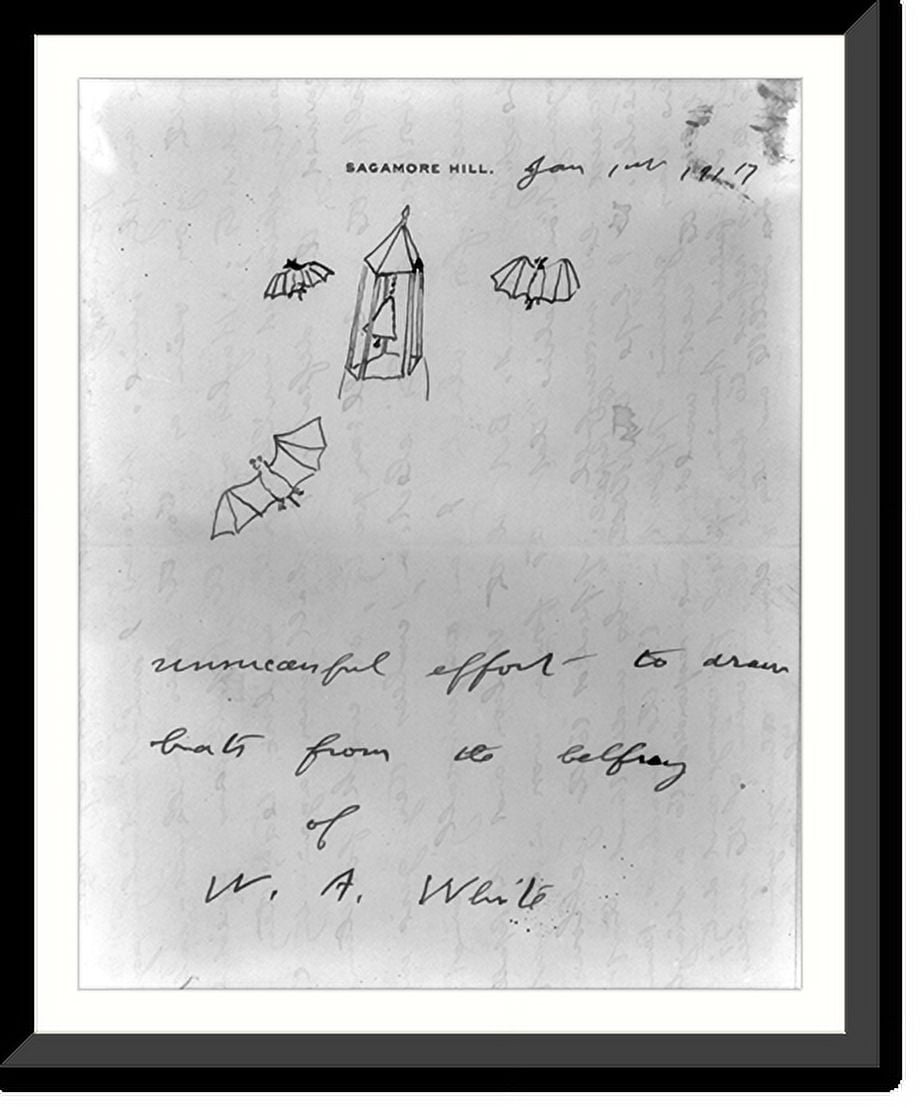 SAGAMORE HILL. Jan 1st 1917
unsuccessful effort to draw
bats from the belfray
of
W. A. White